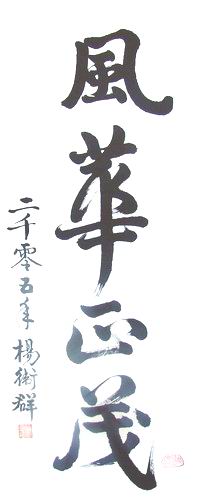 風華正茂
二千零五年 楊術群